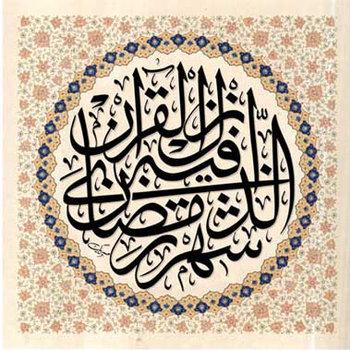 شهر رمضان
الذی انزل فیه
القرآن